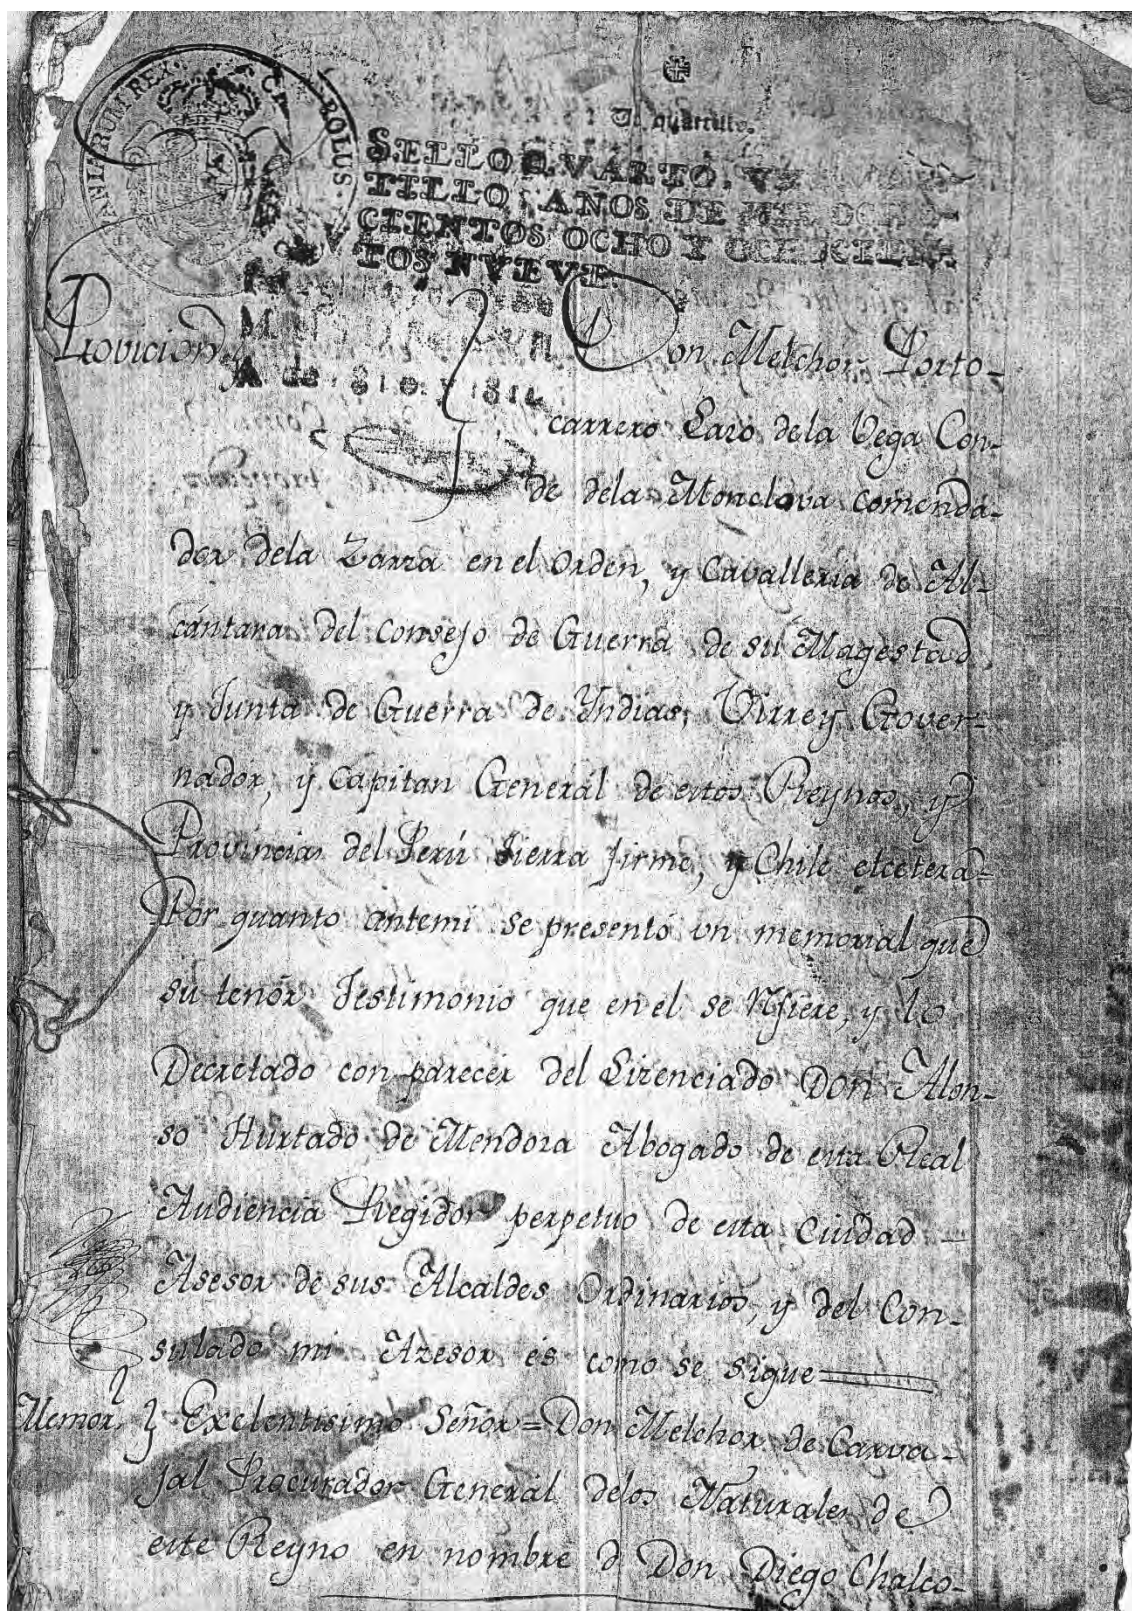 HISPANIARUM REX. CAROLUS
Un quartillo.
SELLO QVARTO, VN
TILLO, AÑOS DE MIL OCHO-
CIENTOS OCHO Y OCHOCIEN-
TOS NVEVE.
Provicion Don Melchor Porto-
carrero Laro dela Vega Con-
de dela Monclova comenda-
dor dela Zarza en el Orden, y Cavalleria de Al-
cántara del Consejo de Guerra de su Magestad
y Junta de Guerra de Yndias, Virrey Gover-
nador, y Capitan Generál de estos Reynos, y
Provincias del Perú Tierra firme, y Chile etcetera-
Por quanto antemi se presentó un memorial que
su tenór Testimonio que en el se rrfiere, y lo
Decretado con parecer del Lizenciado Don Alon-
so Hurtado de Mendoza Abogado de esta Real
Audiencia Regidor perpetuo de esta Ciudad —
Asesor de sus Alcaldes Ordinarios, y del Con-
sulado mi Azesor es como se sigue
Memor.l Exelentisimo Señor = Don Melchor de Carva-
jal Procurador General delos Naturales de
este Reyno en nombre d Don Diego Chalco-